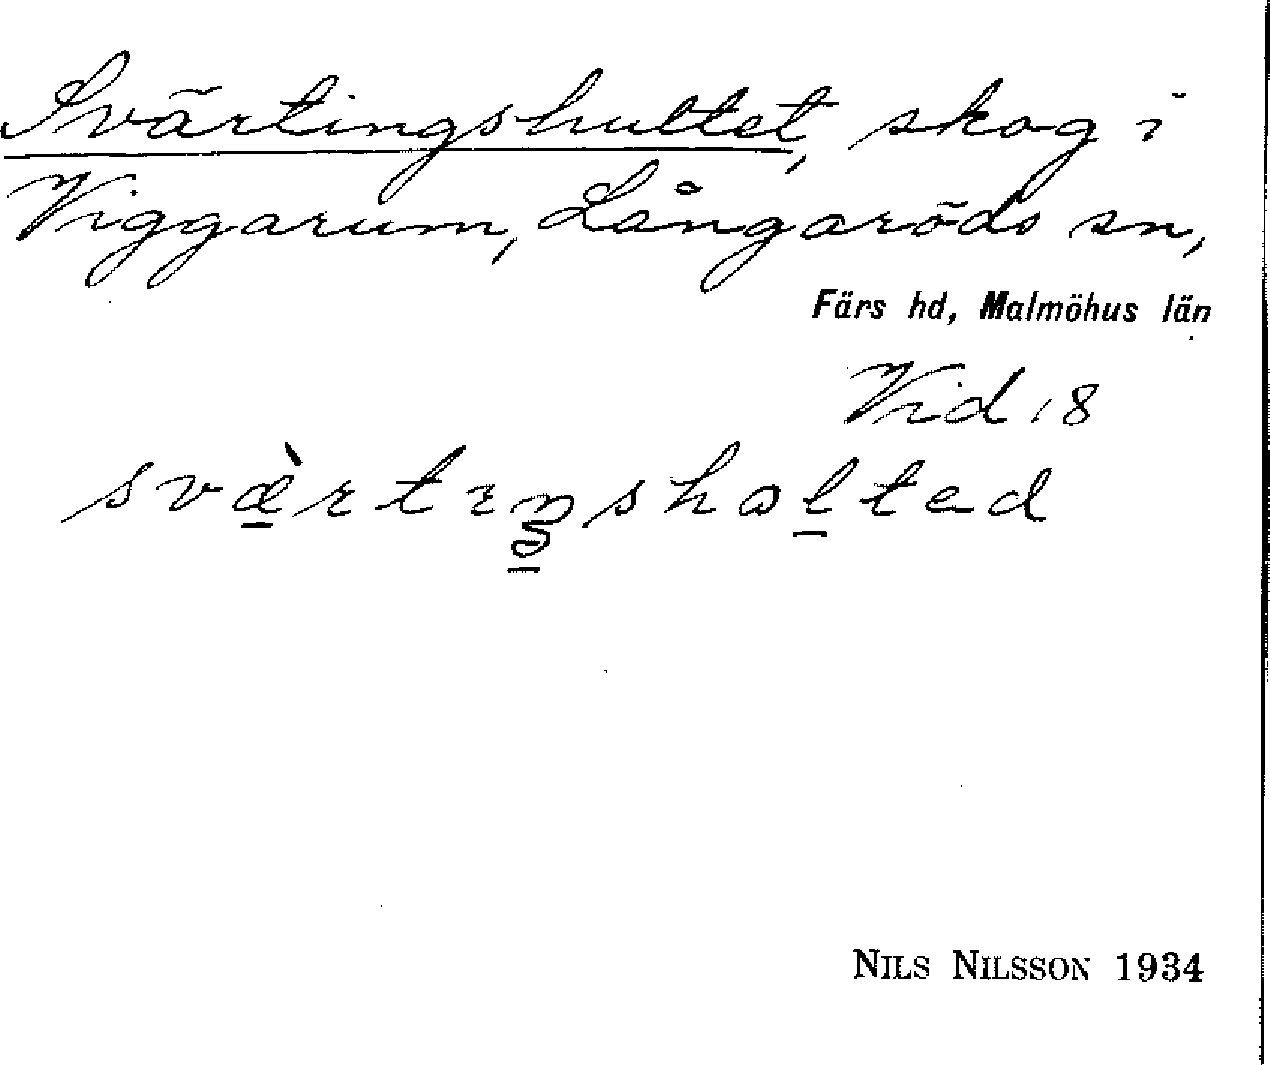 Svärtingshultet, skog i
Viggarum, Långaröds sn,
Färs hd, Malmöhus län
Vid 18
svæ̀rtıŋshɷltad
NILS NILSSON 1934